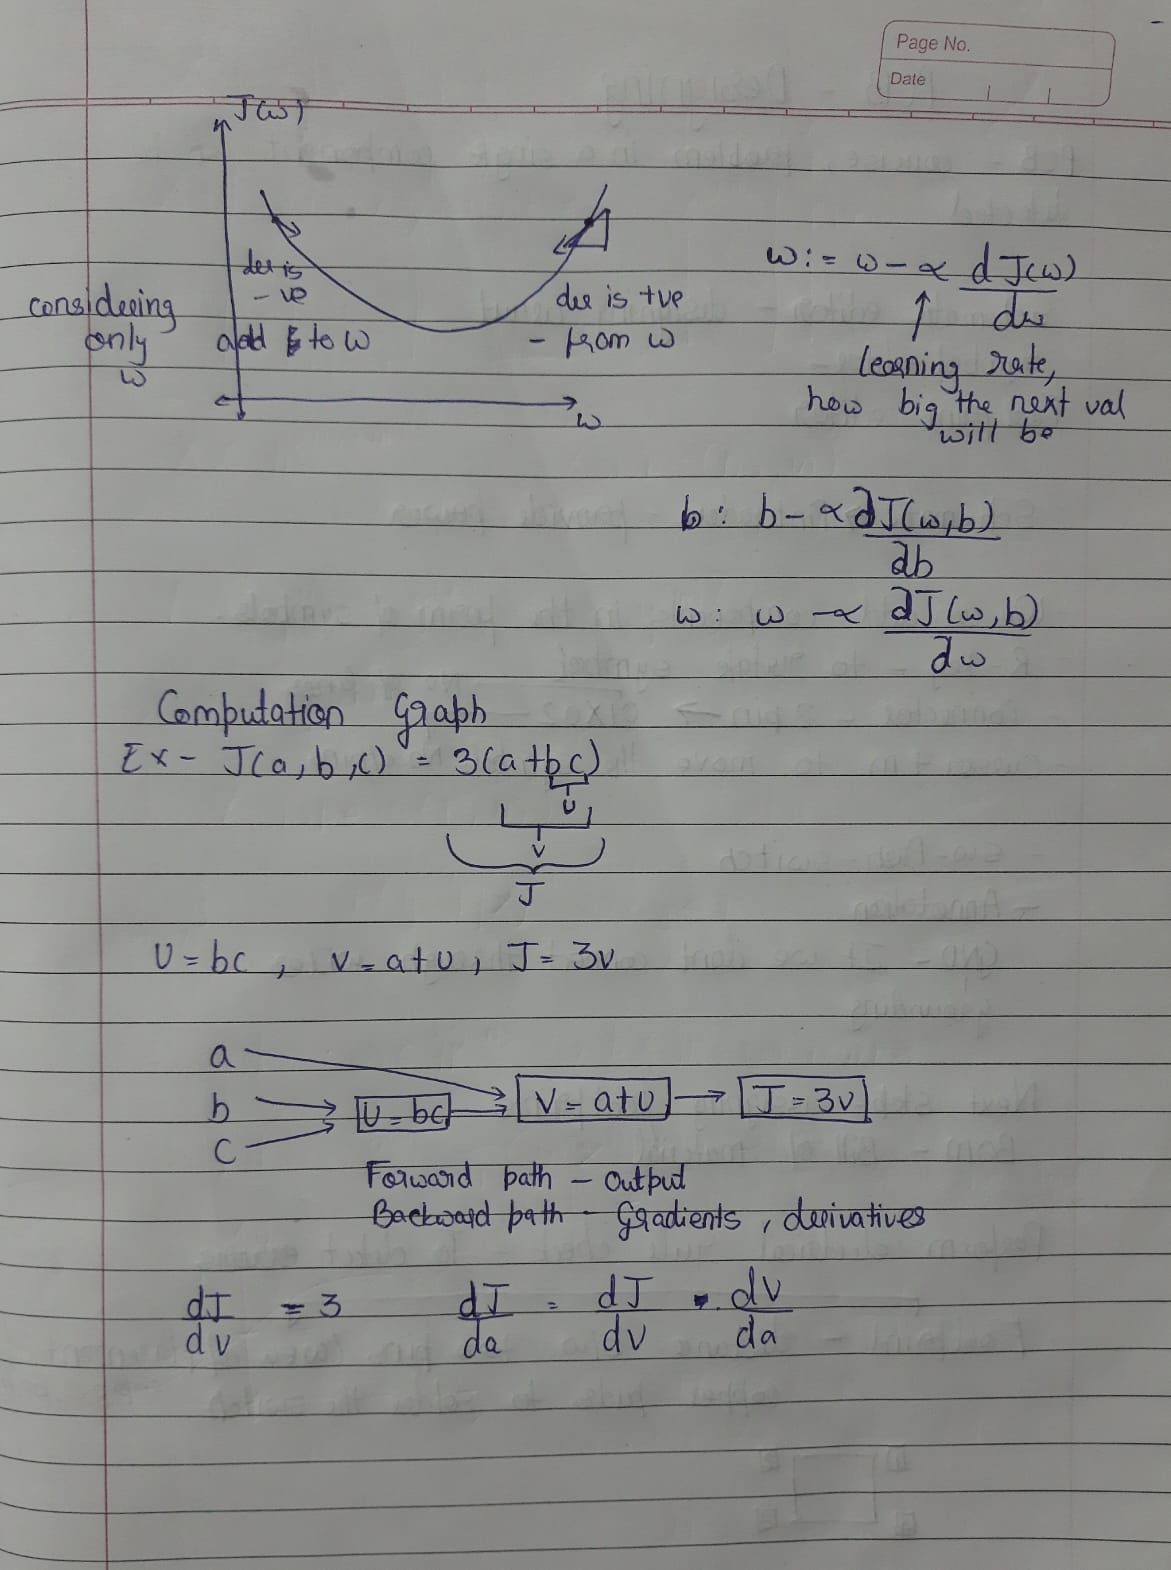 Page No.
Date
J(w)
der is
- ve
add to w
considering
only
w
der is +ve
- from w
w
w := w - α dJ(w)
dw
learning rate,
how big the next val
will be
b: b - α ∂J(w,b)
∂b
w: w - α ∂J(w,b)
dw
Computation Graph
Ex - J(a, b, c) = 3(a+bc)
U
V
J
U = bc , V = a+U, J = 3V
a
b
c
U = bc
V = a+U
J = 3V
Forward path - Output
Backward path - Gradients, derivatives
dJ/dv = 3 dJ/da = dJ/dv . dv/da